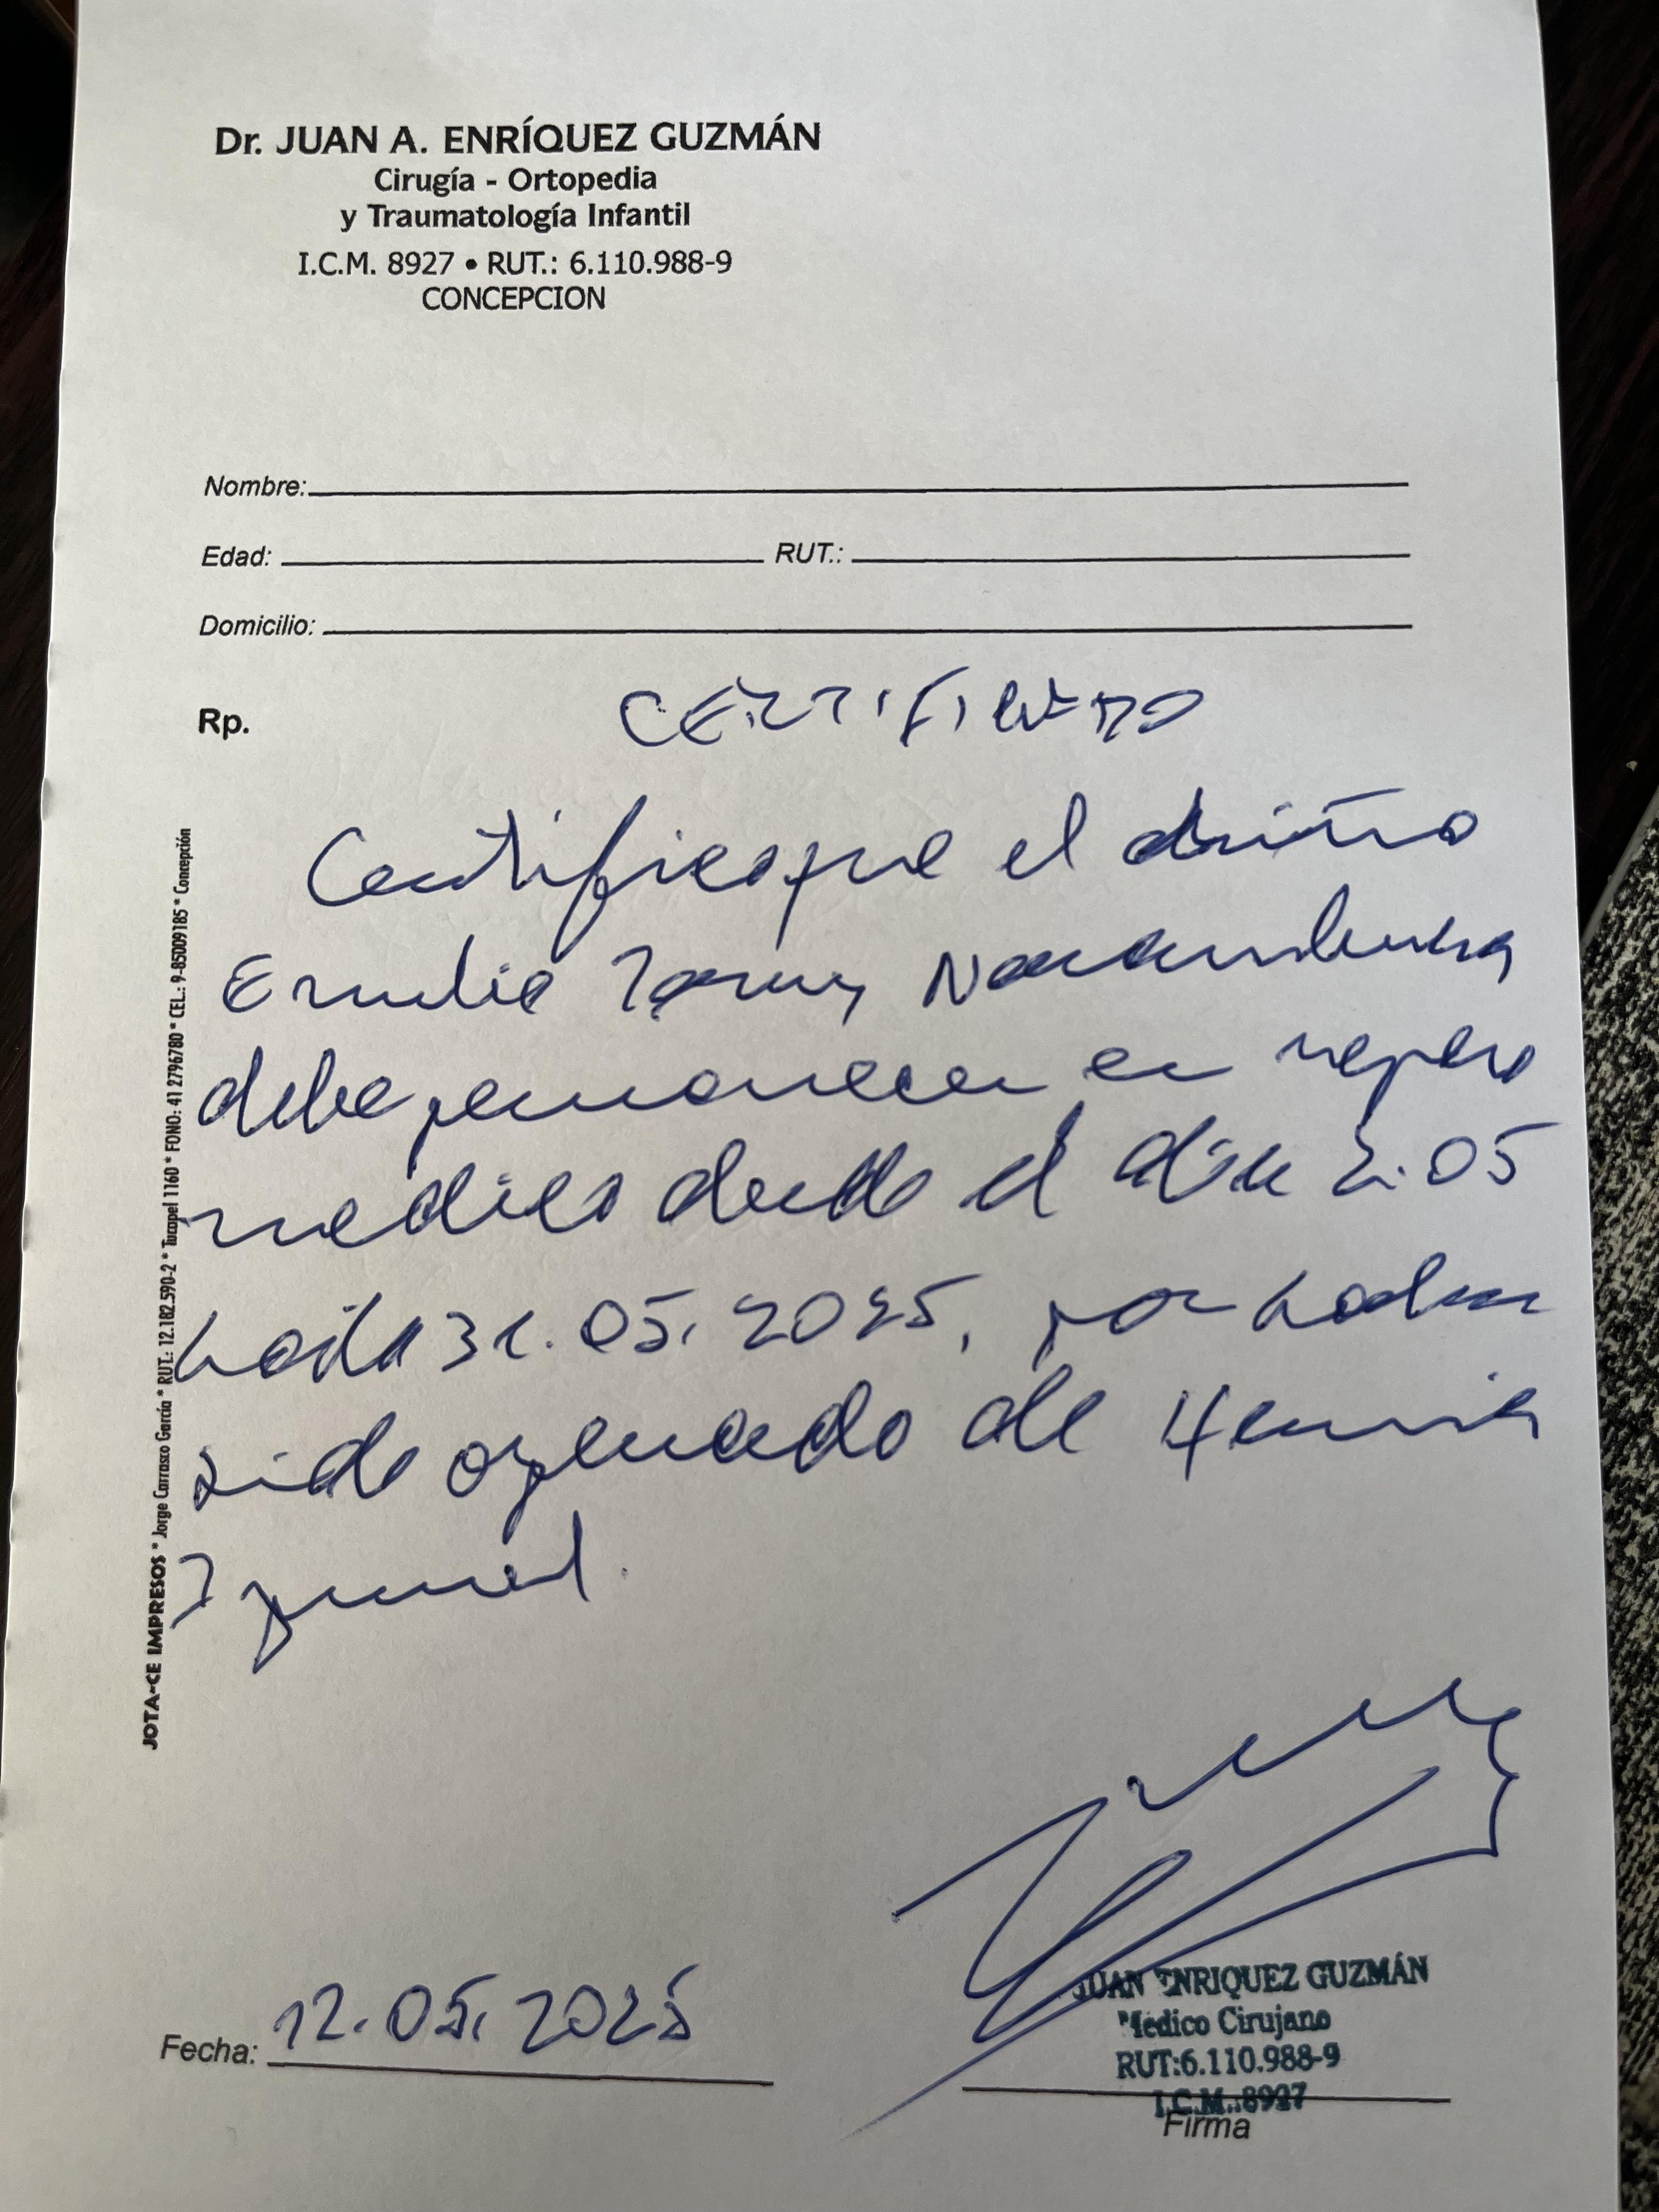 Dr. JUAN A. ENRÍQUEZ GUZMÁN
Cirugía - Ortopedia
y Traumatología Infantil
I.C.M. 8927 • RUT.: 6.110.988-9
CONCEPCION
Nombre:
Edad: RUT.:
Domicilio:
Rp. CERTIFICADO
Certifico que el niño
Emilio
debe permanecer en reposo
medico desde el día 2.05
hasta 31.05.2025, por haber
sido operado de Hernia
Inguinal.
Fecha: 12.05.2025
JUAN ENRIQUEZ GUZMÁN
Médico Cirujano
RUT:6.110.988-9
I.C.M.:8927
Firma
JOTA-CE IMPRESOS * Jorge Carrasco García * RUT.: 12.182.590-2 * Tucapel 1160 * FONO: 41 2796780 * CEL.: 9-85009185 * Concepción